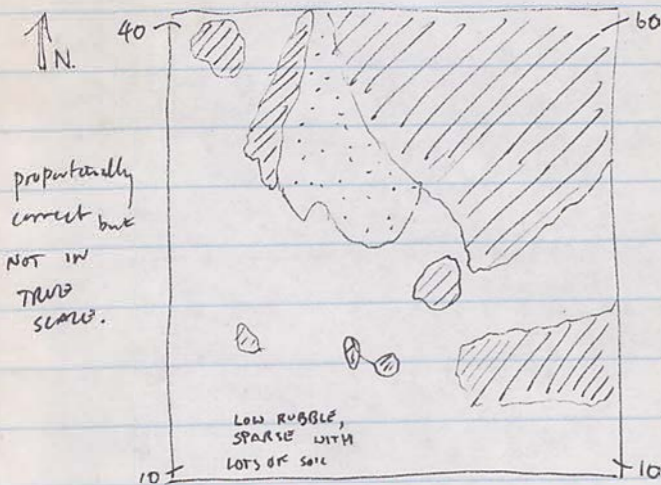 N.
40
60
proportionally
correct but
NOT IN
TRUE
SCALE.
LOW RUBBLE,
SPARSE WITH
LOTS OF SOIL
10
10